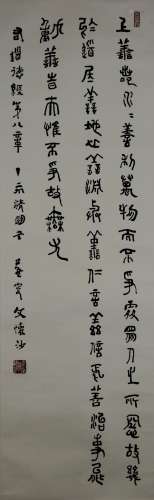 上善若水水善利萬物而不爭處眾人之所惡故幾
於道居善地心善淵與善仁言善信政善治事善能
動善時夫惟不爭故無尤
道德經第八章 燕叟文懷沙